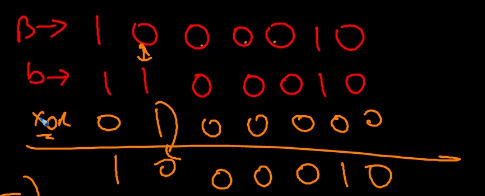 B→ 1 0 0 0 0 1 0
b→ 1 1 0 0 0 1 0
xor 0 1 0 0 0 0 0
1 0 0 0 0 1 0